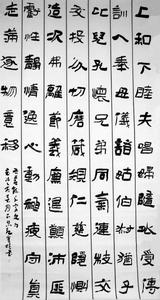 上和下睦夫唱婦隨外受傅
訓入奉母儀諸姑伯叔猶子
比兒孔懷兄弟同氣連枝交
友投分切磨箴規仁慈隱惻
造次弗離節義廉退顛沛匪
虧性靜情逸心動神疲守真
志滿逐物意移